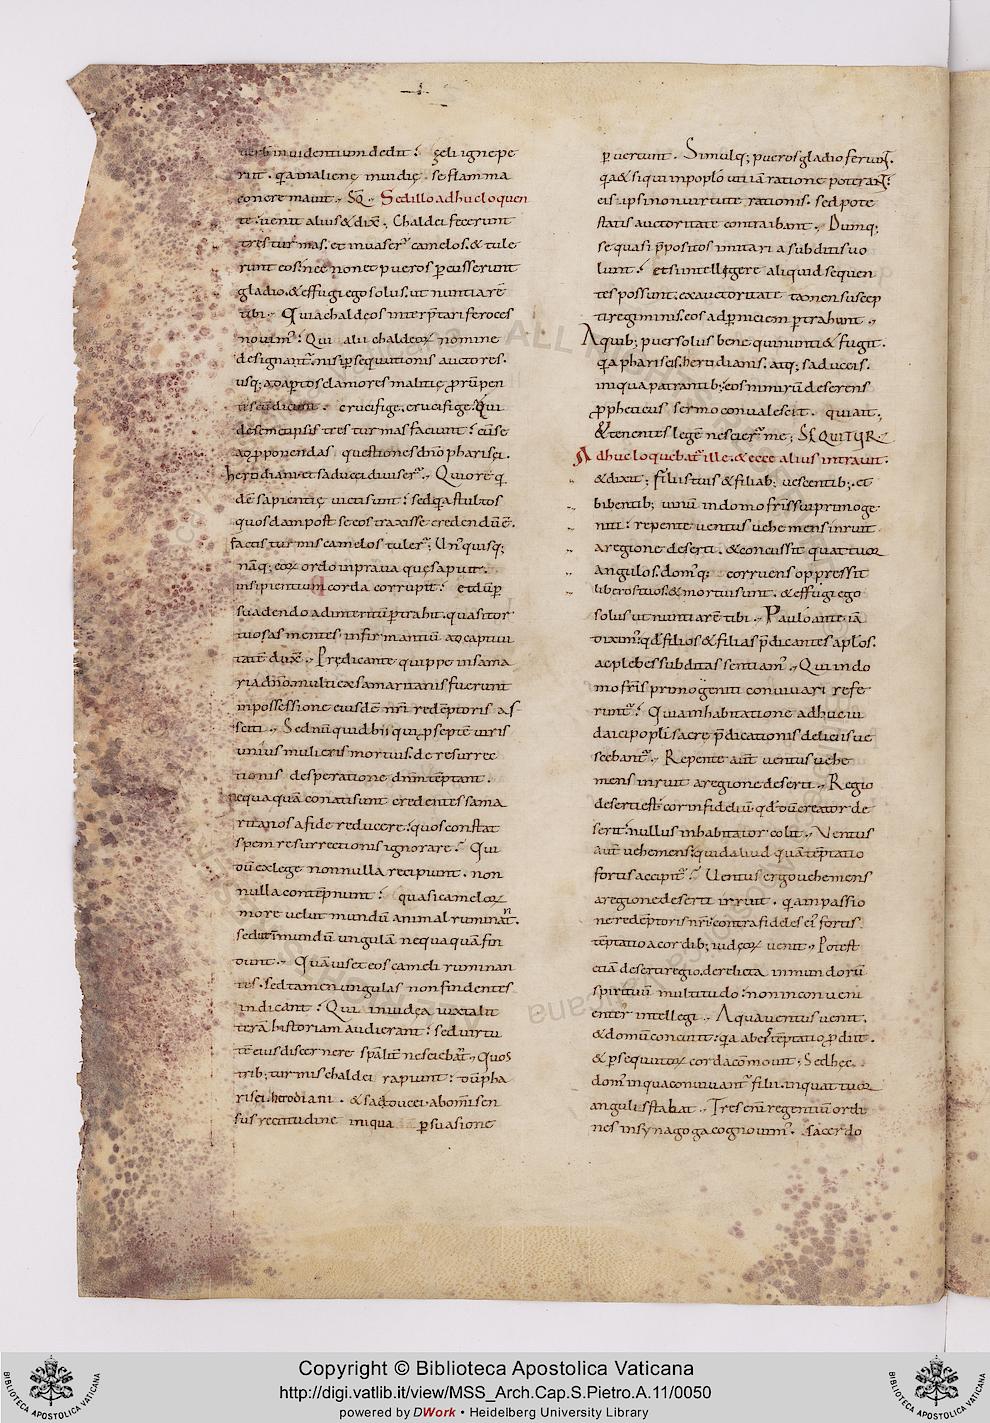 verbũ inuidentium dedit; celi igne pe
riit. qa in alienę inuidię se flamma
SQ. Sed illo adhuc loquen
te: uenit alius & dix̃. Chaldei fecerunt
tres turmas. et inuaser̃ camelos. & tule
runt eos. nec non et pueros ꝑcusserunt
gladio. & effugi ego solus. ut nuntiarẽ
tibi. Quia chaldęos interp̃tari feroces
nouim̃. Qui alii chaldeoꝝ nomine
designant̃. nisi ꝑsequutionis auctores.
usq; ad aꝑtos clamores malitię ꝓrũpen
crucifige. crucifige. Qui
de semetipsis tres turmas faciunt: cũ se
ad ꝓponendas questiones dñō pharisęi.
herodiani et saducei diuiser̃. Qui ore q̃
dẽ sapientię uicti sunt: sed qa stultos
quosdam post se eos traxisse credendũ ẽ.
factis turmis camelos tuler̃; Uñ quisq;
nãq; eoꝝ ordo in praua quę sapuit.
insipientium corda corrupit: et dũ ꝑ
suadendo ad interitũ ꝑtrahit. quasi tor
tuosas mentes infirmantiũ ad captiui
tatẽ dux̃. Prędicante quippe in sama
ria dñō multi ex samaritanis fuerunt
in possessione eiusdẽ nr̃i redẽptoris as
sciti. Sed nũquid hii qui ꝑ septẽ uiris
unius mulieris mortuis. de resurrec
tionis desperatione dñm tẽptant.
nequaquã conati sunt credentes sama
ritanos a fide reducere: quos constat
spem resurrectionis ignorare. Qui
dũ ex lege nonnulla recipiunt. non
nulla contẽpnunt: quasi cameloꝝ
more uelut mundũ animal ruminañt.
sed ut inmundũ ungulã nequaquã fin
dunt. Quãuis et eos cameli ruminan
tes. sed tamen ungulas non findentes
indicant: Qui in iudęa iuxta lit
terã historiam audierant: sed uirtu
tẽ eius discernere sp̃alit̃ nesciebañt. Quos
trib; turmis chaldei rapiunt: dũ pha
risei. herodiani. & saducei. ab om̃i sen
sus rectitudine iniqua ꝑsuasione
ꝑuertunt. Simulq; pueros gladio feriunt.
qa & si qui in poplõ uti iã ratione poterant:
eis ipsi non uirtute rationis. sed pote
statis auctoritate contraibant. Dumq;
se quasi p̃positos imitari a subditis uo
lunt: et si intellegere aliquid sequen
tes possunt. ex auctoritate tamen suscep
ti regiminis. eos ad ꝑniciem ꝑtrahunt.
A quib; puer solus bene qui nuntiet fugit.
qa phariseis. herodianis. atq; saduceis.
iniqua patrantib; eos nimirũ deserens
ꝓpheticus sermo conualescit. qui ait;
& tenentes legẽ nescier̃ me; SEQUITUR
Adhuc loquebat̃ ille. & ecce alius intrauit.
& dixit; filiis tuis & filiab; uescentib;. et
bibentib; uinũ in domo fr̃is sui primoge
niti: repente uentus uehemens inruit
a regione deserti. & concussit quattuor
angulos. domꝰ q; corruens oppressit
liberos tuos. & mortui sunt. & effugi ego
solus ut nuntiarẽ tibi. Paulo ante iã
diximꝰ. qd̃ filios & filias p̃dicantes apl̃os.
ac plebes subditas sentiamꝰ. Qui in do
mo fr̃is primogeniti conuiuari refe
runt̃: Quia in habitatione adhuc iu
daici popl̃i. sacre p̃dicationis deliciis ue
scebant̃. Repente aut̃ uentus uehe
mens inruit a regione deserti. Regio
deserti est cor infideliũ. qd̃ dũ creator de
serit: nullus inhabitator colit. Uentus
aut̃ uehemens: quid aliud quã tẽptatio
fortis accipit̃: Uentus ergo uehemens
a regione deserti irruit. qa in passio
ne redẽptoris nr̃i: contra fideles eꝰ fortis
Potest
etiã deserti regio. derelicta inmundorũ
spirituũ multitudo: non inconueni
enter intellegi. A qua uentus uenit.
& domũ concutit: qa ab eis tẽptatio ꝓdiit.
& ꝑsequitoꝝ corda cõmouit; Sed hęc
domꝰ in qua conuiuant̃ filii. in quattuor
angulis stabat. Tres eni regentiũ ordi
nes in synagoga cognouimꝰ. sacerdo
Copyright © Biblioteca Apostolica Vaticana
http://digi.vatlib.it/view/MSS_Arch.Cap.S.Pietro.A.11/0050
powered by DWork • Heidelberg University Library
BIBLIOTECA APOSTOLICA VATICANA
BIBLIOTECA APOSTOLICA VATICANA